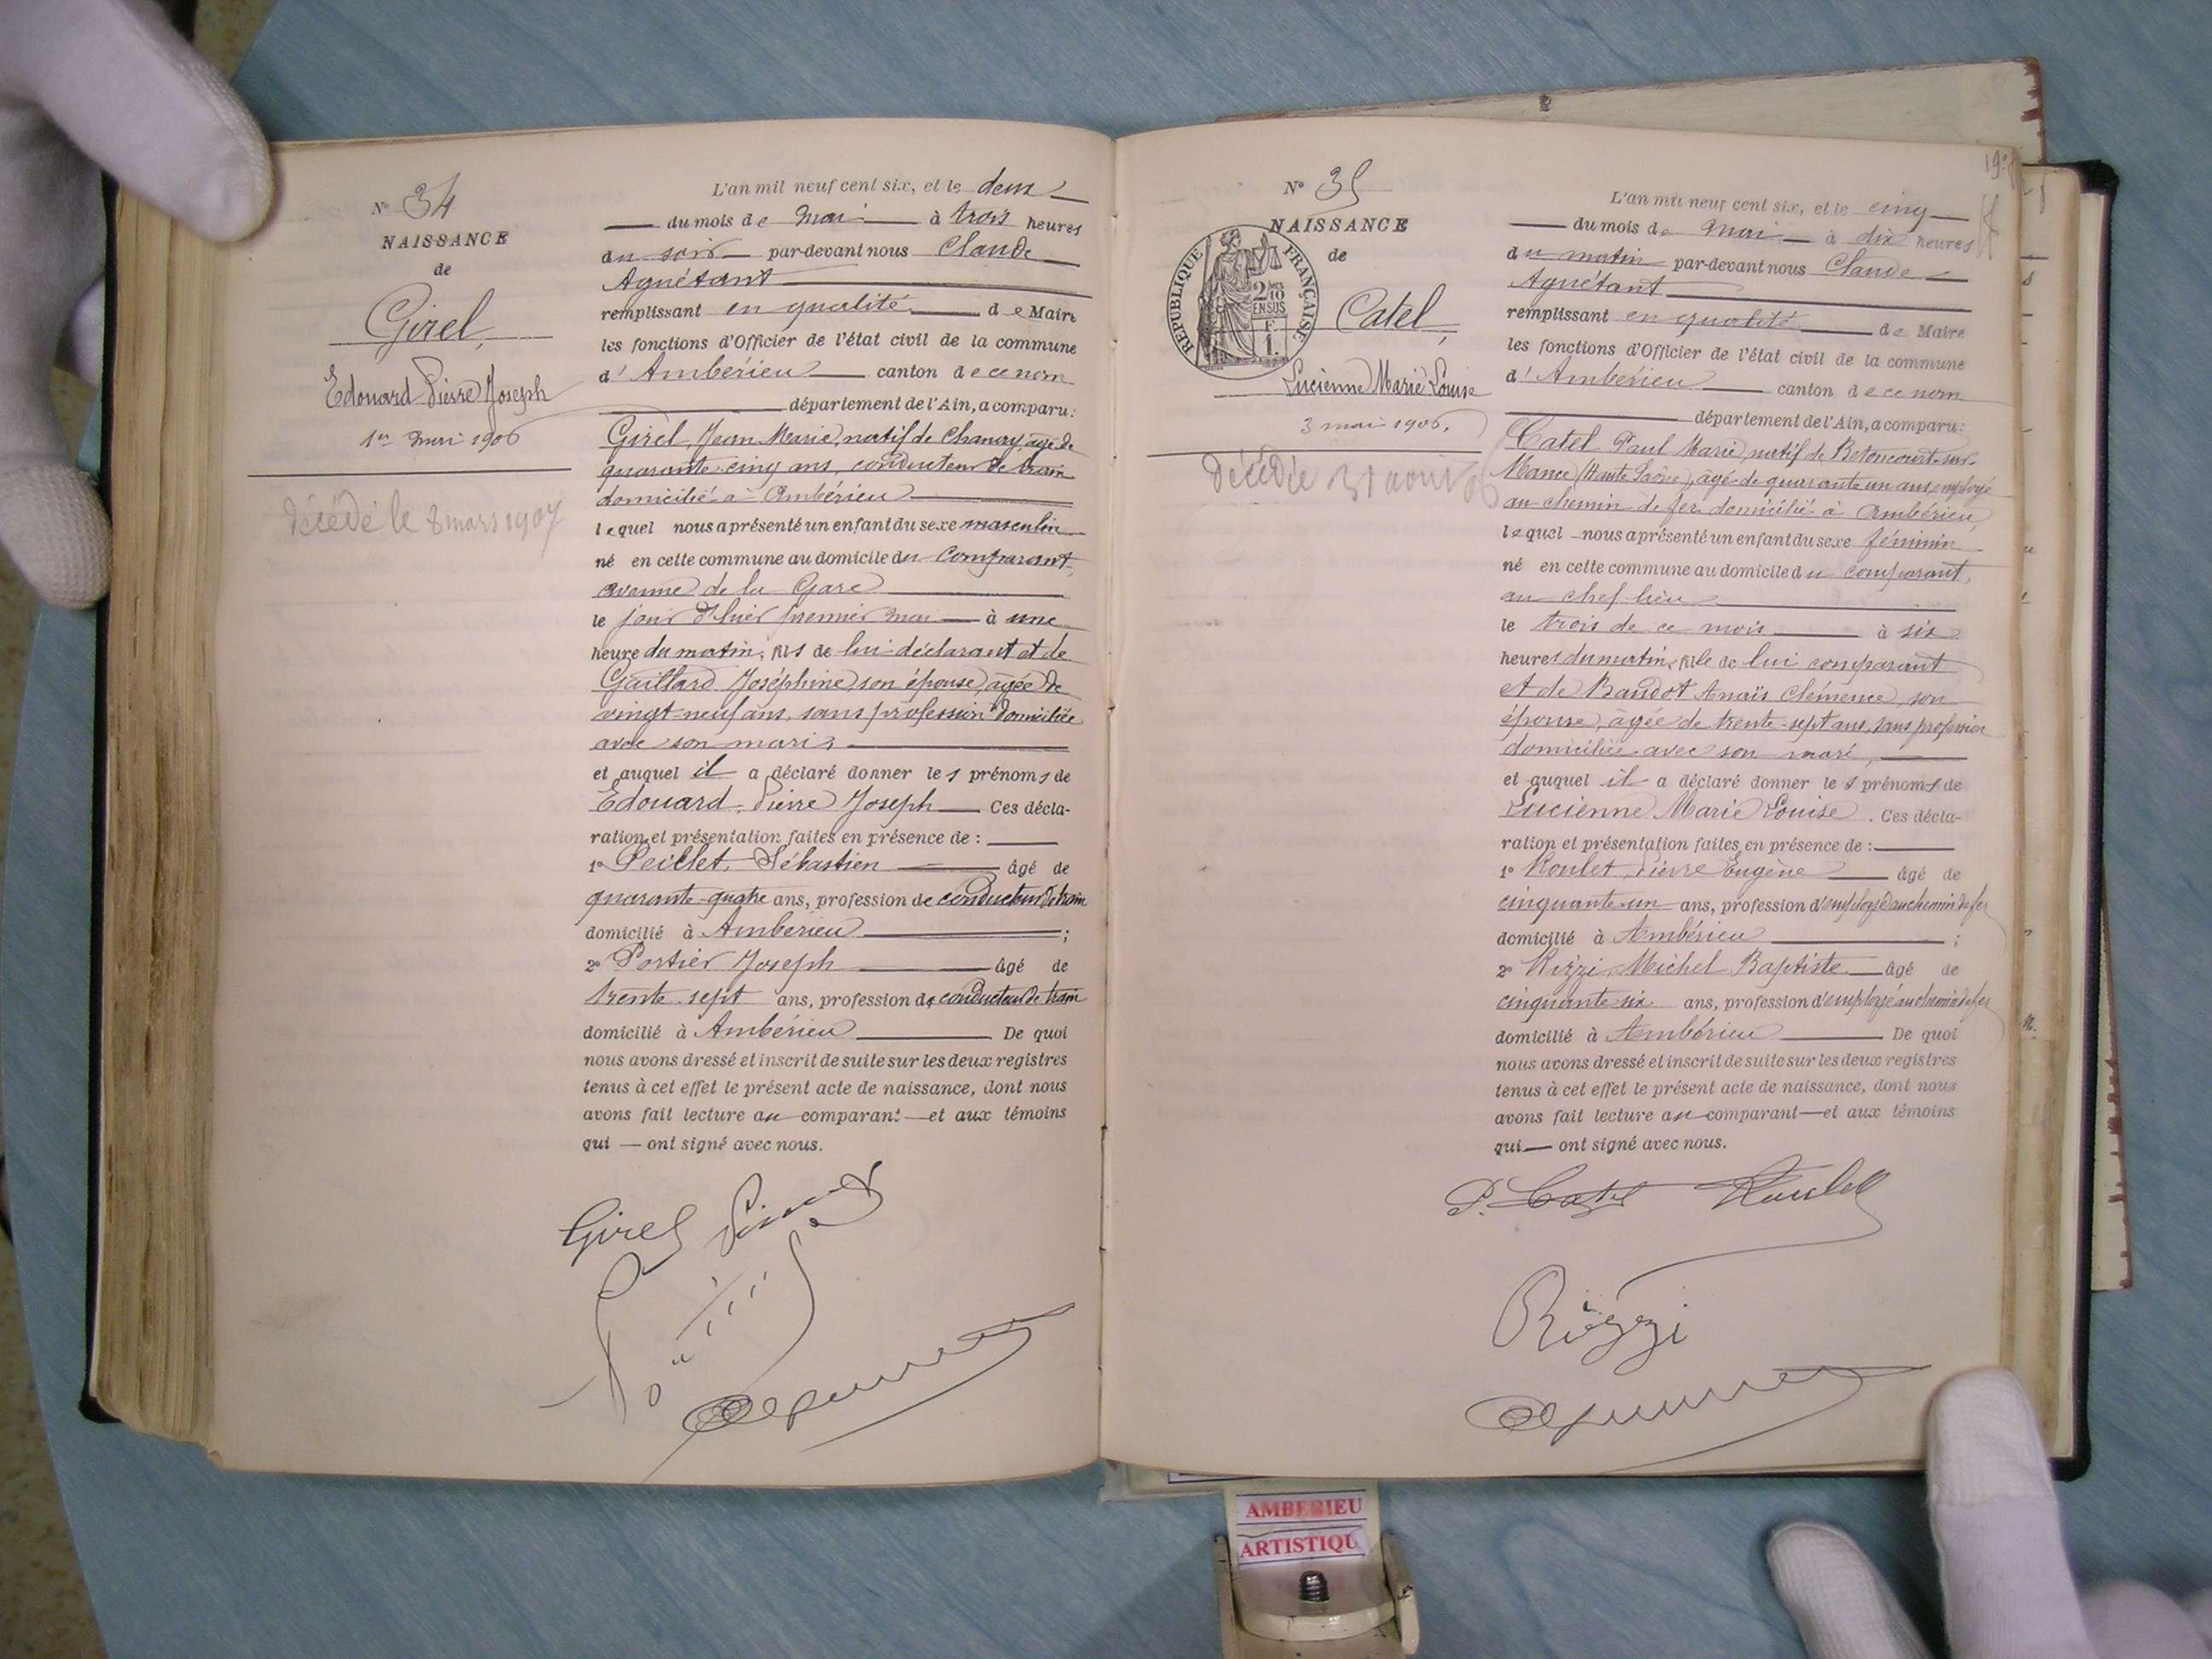 N° 34
NAISSANCE
de
Girel,
Edouard Pierre Joseph
1er mai 1906
décédé le 8 mars 1907
L'an mil neuf cent six, et le deux
du mois de mai à trois heures
du soir par-devant nous Claude
Aguétant
remplissant en qualité de Maire
les fonctions d'Officier de l'état civil de la commune
d'Ambérieu canton de ce nom
département de l'Ain, a comparu:
Girel, Jean Marie, natif de Chanay, âgé de
quarante-cinq ans, conducteur de train
domicilié à Ambérieu
lequel nous a présenté un enfant du sexe masculin
né en cette commune au domicile du comparant,
avenue de la Gare
le jour d'hier premier mai à une
heure du matin, fils de lui déclarant et de
Gaillard Joséphine, son épouse, âgée de
vingt-neuf ans, sans profession domiciliée
avec son mari,
et auquel il a déclaré donner les prénoms de
Edouard, Pierre Joseph Ces décla-
ration et présentation faites en présence de :
1° Peillet, Sébastien âgé de
quarante-quatre ans, profession de conducteur de train
domicilié à Ambérieu ;
2° Portier Joseph âgé de
trente-sept ans, profession de conducteur de train
domicilié à Ambérieu De quoi
nous avons dressé et inscrit de suite sur les deux registres
tenus à cet effet le présent acte de naissance, dont nous
avons fait lecture au comparant et aux témoins
qui ont signé avec nous.
Girel
N° 35
NAISSANCE
de
RÉPUBLIQUE FRANÇAISE
2/10 EN SUS
F.
1.
Catel,
Lucienne Marie Louise
3 mai 1906.
décédée 31 août 06
L'an mil neuf cent six, et le cinq
du mois de mai à dix heures
du matin par-devant nous Claude
Aguétant
remplissant en qualité de Maire
les fonctions d'Officier de l'état civil de la commune
d'Ambérieu canton de ce nom
département de l'Ain, a comparu:
Catel Paul Marie, natif de Betoncourt-sur-
Mance (Haute Saône), âgé de quarante un ans, employé
au chemin de fer domicilié à Ambérieu,
lequel nous a présenté un enfant du sexe féminin
né en cette commune au domicile du comparant,
au chef-lieu
le trois de ce mois à six
heures du matin, fille de lui comparant
et de Baudot Anaïs Clémence, son
épouse, âgée de trente-sept ans, sans profession
domiciliée avec son mari,
et auquel il a déclaré donner les prénoms de
Lucienne Marie Louise. Ces décla-
ration et présentation faites en présence de :
1° Roulet, Pierre Eugène âgé de
cinquante-un ans, profession d'employé au chemin de fer
domicilié à Ambérieu ;
2° Rizzi Michel Baptiste âgé de
cinquante-six ans, profession d'employé au chemin de fer
domicilié à Ambérieu De quoi
nous avons dressé et inscrit de suite sur les deux registres
tenus à cet effet le présent acte de naissance, dont nous
avons fait lecture au comparant et aux témoins
qui ont signé avec nous.
P. Catel Roulet
Rizzi
AMBERIEU
ARTISTIQU